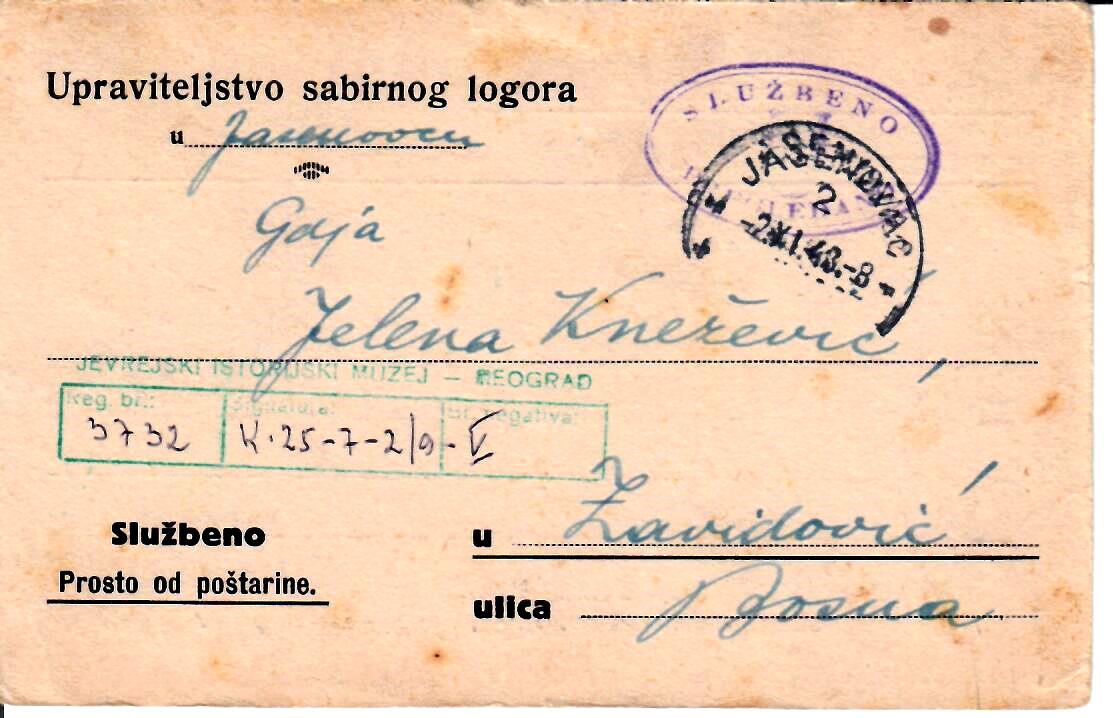 Upraviteljstvo sabirnog logora
u Jasenovcu
SLUŽBENO
JASENOVAC
2
Gdja
Jelena Knežević,
JEVREJSKI ISTORIJSKI MUZEJ – BEOGRAD
Reg. br.: Signatura: Br. negativa:
3732 K.25-7-2/9-V
Službeno
Prosto od poštarine.
u Zavidović
ulica Bosna